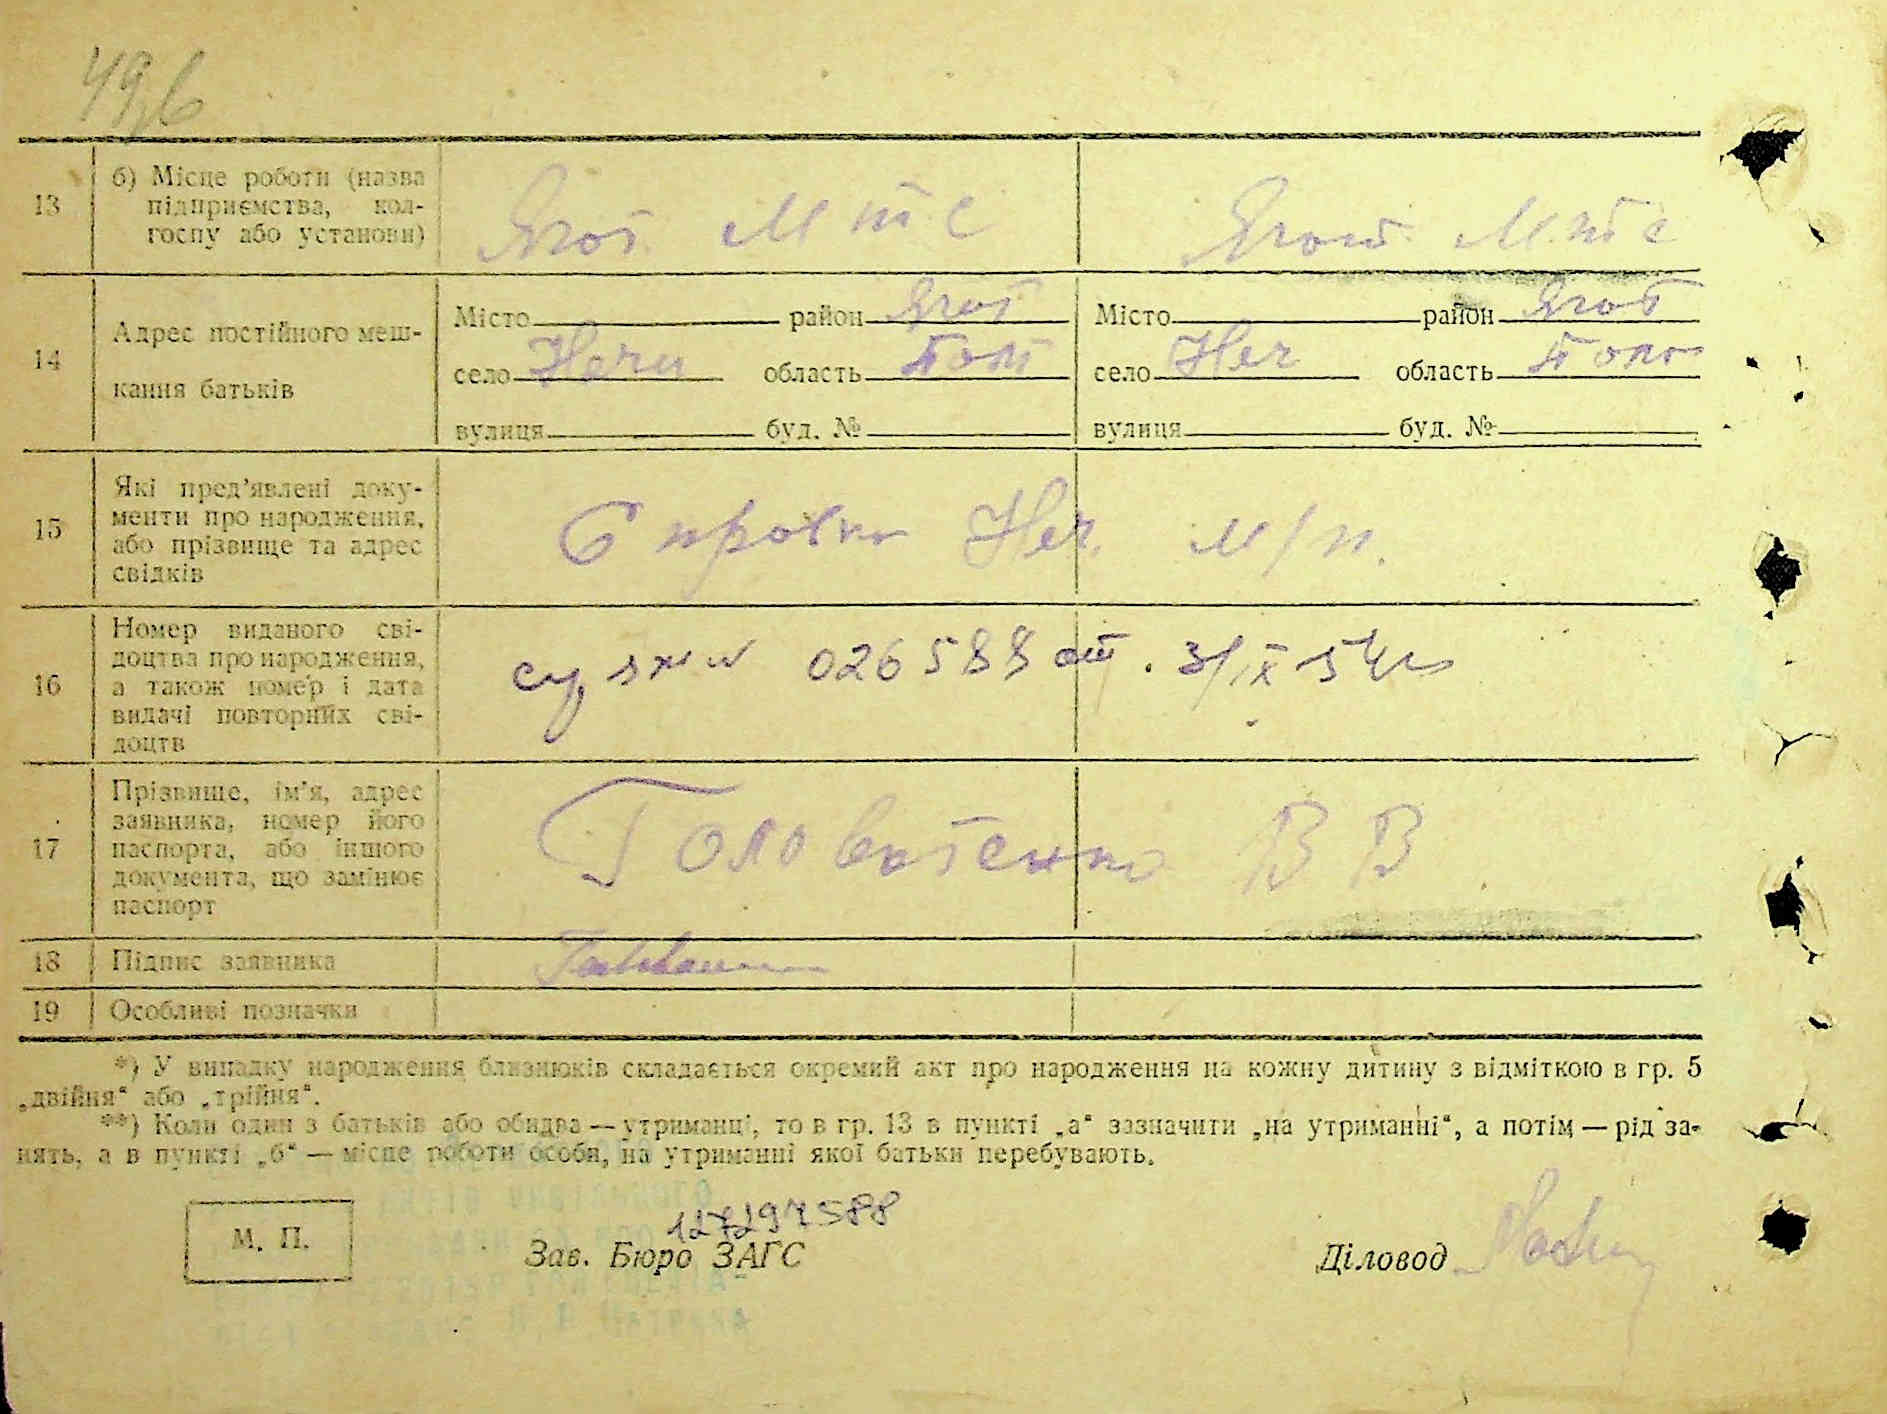 13
б) Місце роботи (назва
підприємства, кол-
госпу або установи)
М т с
М. т с
14
Адрес постійного меш-
кання батьків
Місто район
село область
вулиця буд. №
Місто район
село Неч область
вулиця буд. №
15
Які пред’явлені доку-
менти про народження,
або прізвище та адрес
свідків
Справка Неч. м/п.
16
Номер виданого сві-
доцтва про народження,
а також номер і дата
видачі повторних сві-
доцтв
026588 от. 3/IX 54
17
Прізвище, ім’я, адрес
заявника, номер його
паспорта, або іншого
документа, що замінює
паспорт
Головатенко В В
18 Підпис заявника
19 Особливі позначки
*) У випадку народження близнюків складається окремий акт про народження на кожну дитину з відміткою в гр. 5
„двійня“ або „трійня“.
**) Коли один з батьків або обидва — утриманці, то в гр. 13 в пункті „а“ зазначити „на утриманні“, а потім — рід за-
нять, а в пункті „б“ — місце роботи особи, на утриманні якої батьки перебувають.
М. П.
Зав. Бюро ЗАГС
Діловод